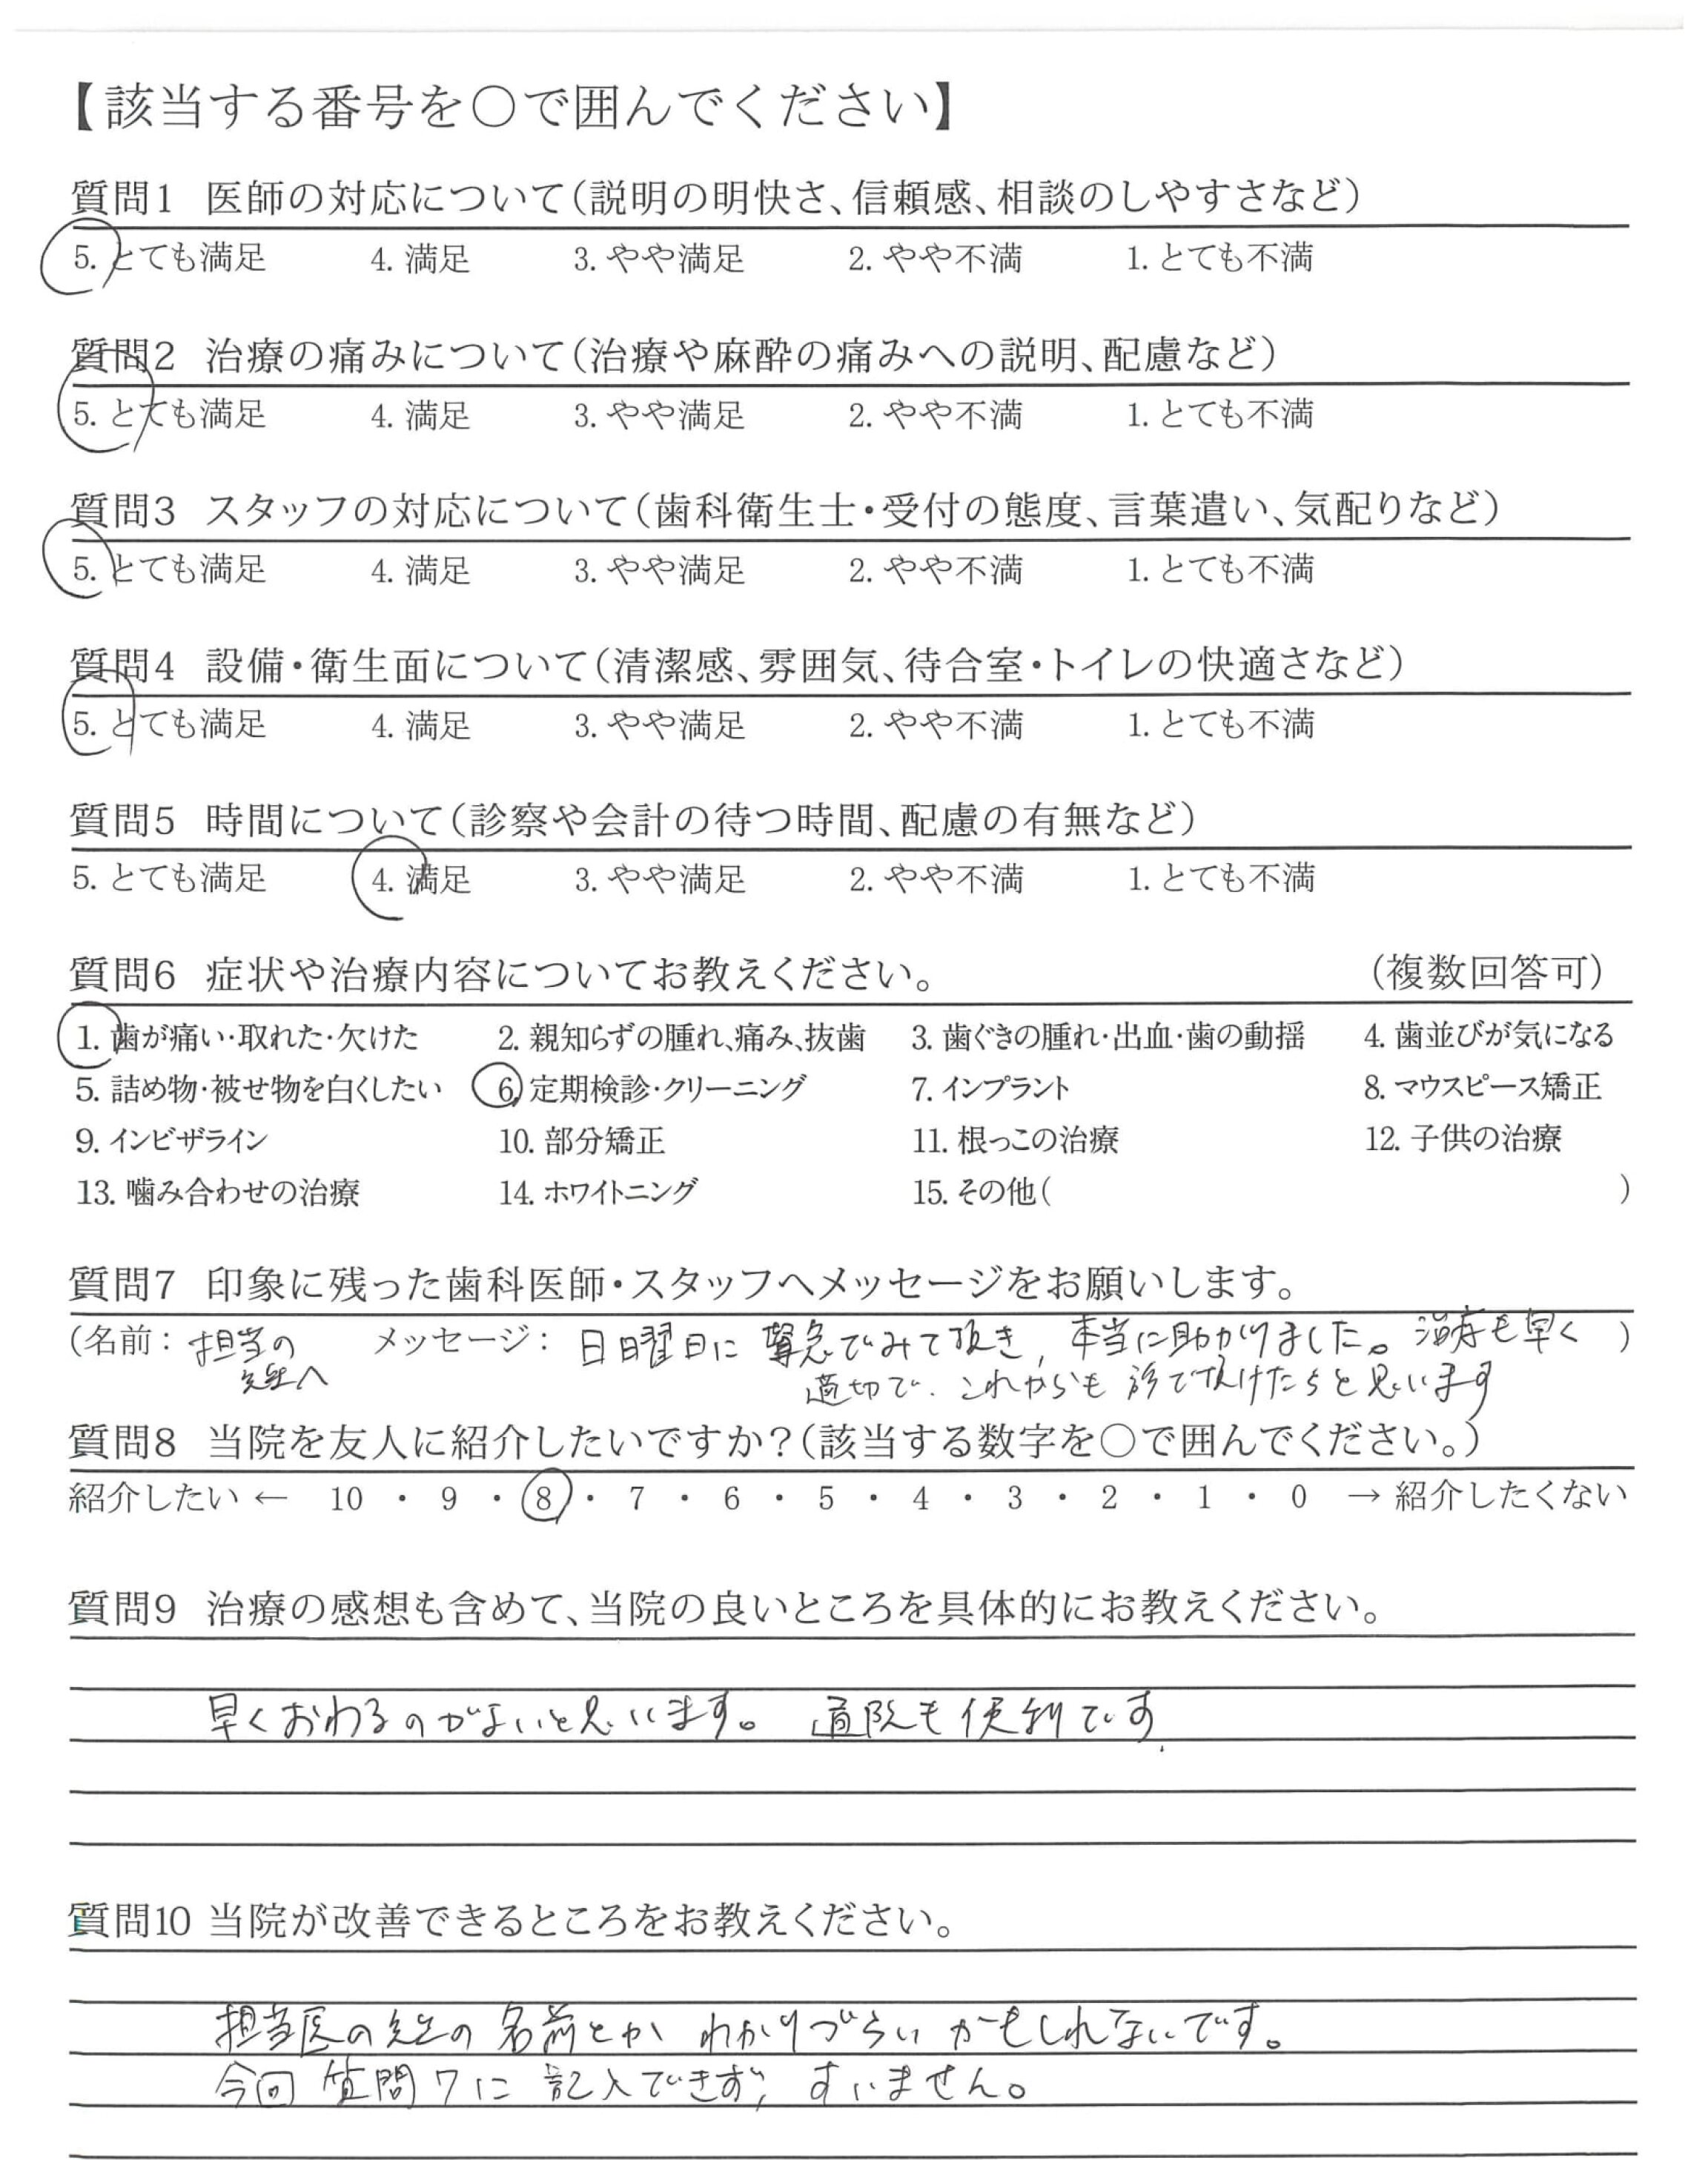 【該当する番号を○で囲んでください】
質問1 医師の対応について(説明の明快さ、信頼感、相談のしやすさなど)
5. とても満足 4. 満足 3. やや満足 2. やや不満 1. とても不満
質問2 治療の痛みについて(治療や麻酔の痛みへの説明、配慮など)
5. とても満足 4. 満足 3. やや満足 2. やや不満 1. とても不満
質問3 スタッフの対応について(歯科衛生士・受付の態度、言葉遣い、気配りなど)
5. とても満足 4. 満足 3. やや満足 2. やや不満 1. とても不満
質問4 設備・衛生面について(清潔感、雰囲気、待合室・トイレの快適さなど)
5. とても満足 4. 満足 3. やや満足 2. やや不満 1. とても不満
質問5 時間について(診察や会計の待つ時間、配慮の有無など)
5. とても満足 4. 満足 3. やや満足 2. やや不満 1. とても不満
質問6 症状や治療内容についてお教えください。 (複数回答可)
1. 歯が痛い・取れた・欠けた 2. 親知らずの腫れ、痛み、抜歯 3. 歯ぐきの腫れ・出血・歯の動揺 4. 歯並びが気になる
5. 詰め物・被せ物を白くしたい 6. 定期検診・クリーニング 7. インプラント 8. マウスピース矯正
9. インビザライン 10. 部分矯正 11. 根っこの治療 12. 子供の治療
13. 噛み合わせの治療 14. ホワイトニング 15. その他( )
質問7 印象に残った歯科医師・スタッフへメッセージをお願いします。
(名前: 担当の メッセージ: 日曜日に緊急でみて頂き、本当に助かりました。治療も早く )
先生へ 適切で、これからも診て頂けたらと思います
質問8 当院を友人に紹介したいですか?(該当する数字を○で囲んでください。)
紹介したい ← 10 ・ 9 ・ 8 ・ 7 ・ 6 ・ 5 ・ 4 ・ 3 ・ 2 ・ 1 ・ 0 → 紹介したくない
質問9 治療の感想も含めて、当院の良いところを具体的にお教えください。
早くおわるのがよいと思います。 通院も便利です.
質問10 当院が改善できるところをお教えください。
担当医の先生の名前とか わかりづらいかもしれないです。
今回 質問7に 記入できず, すいません。